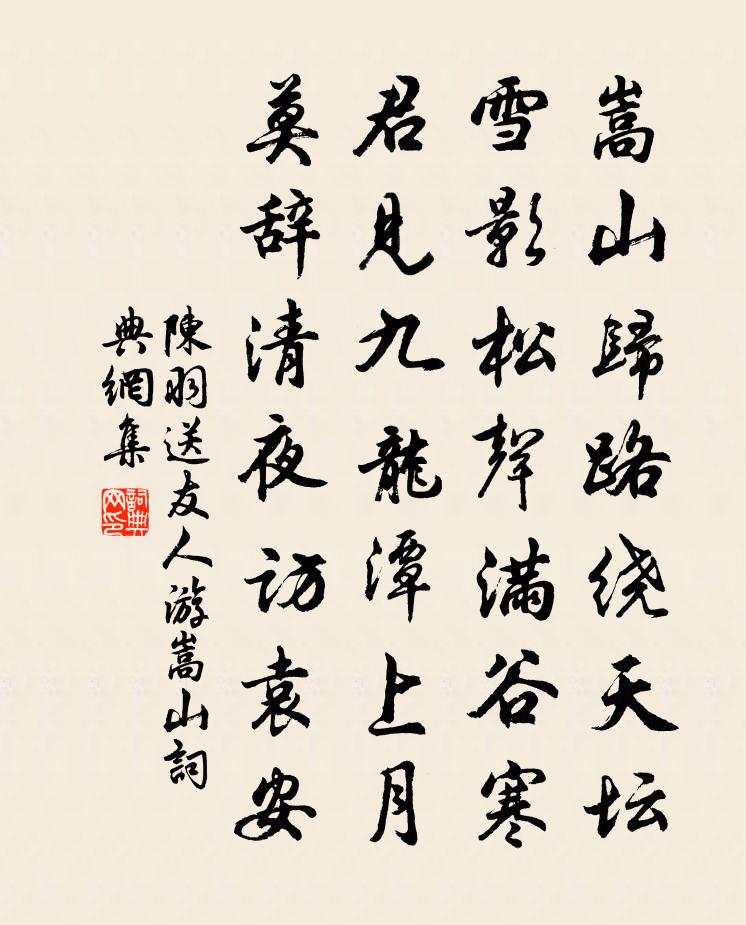 嵩山歸路绕天坛
雪影松聲滿谷寒
君見九龍潭上月
莫辞清夜访袁安
陳羽送友人游嵩山詞
典網集
詞典网印